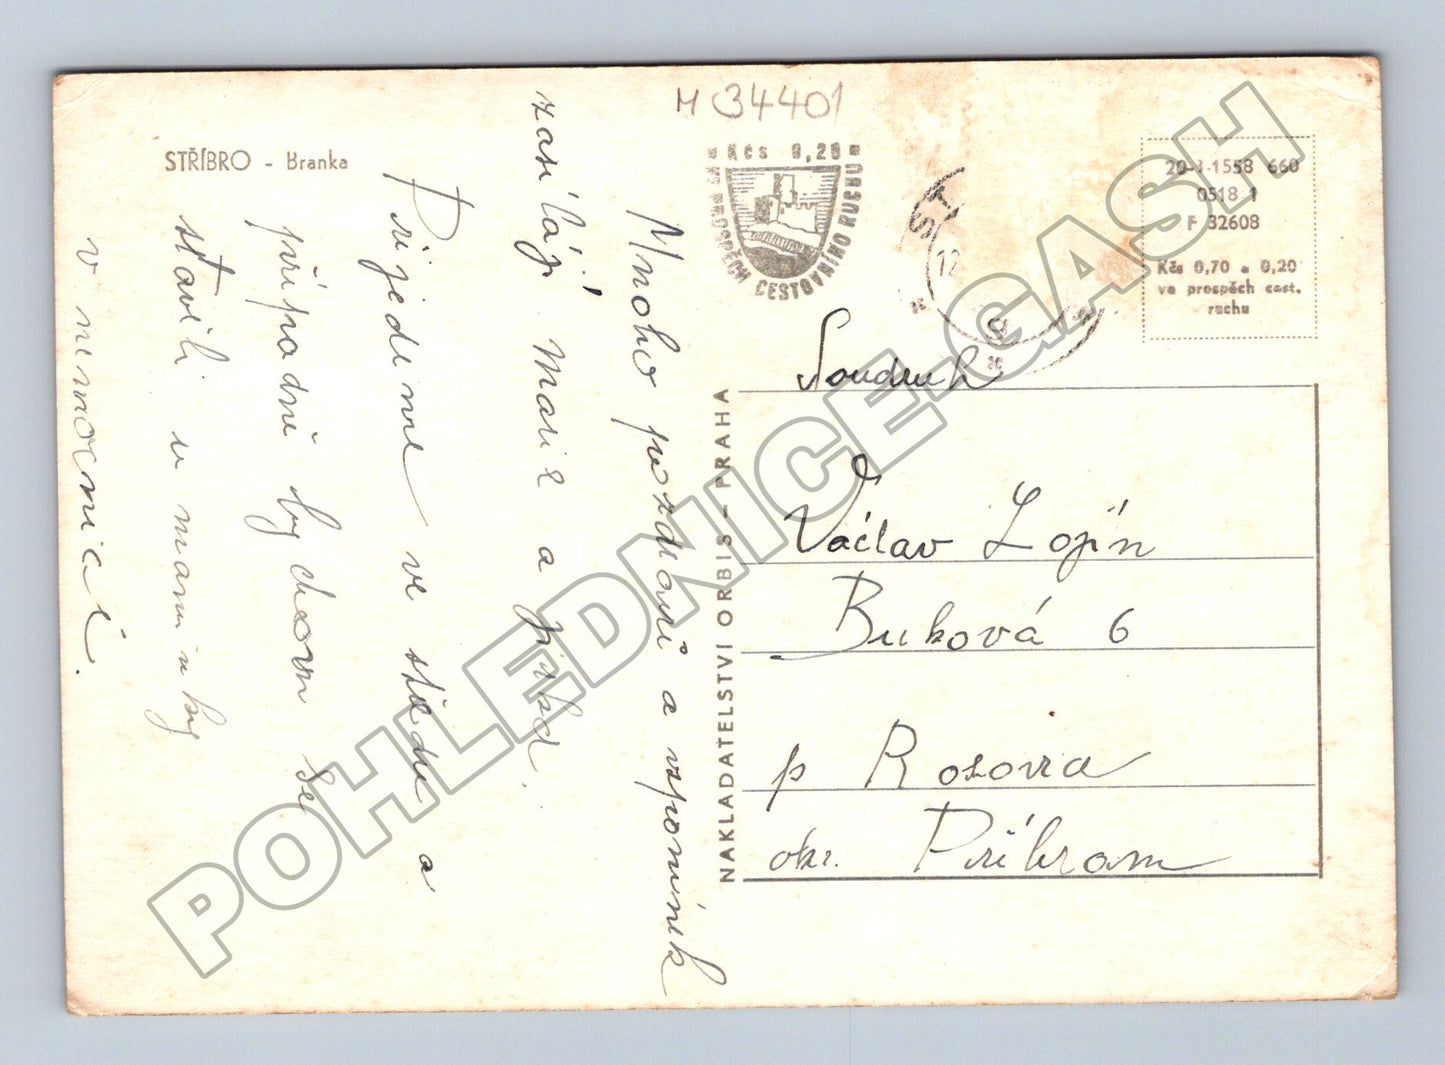 M 34401
STŘÍBRO - Branka
Kčs 0,20
VE PROSPĚCH CESTOVNÍHO RUCHU
ST
12
20-1-1558 660
0518 1
F 32608
Kčs 0,70 + 0,20
ve prospěch cest.
ruchu
Mnoho pozdravů a vzpomínek
zasílají Marie a
Přijedeme ve středu a
případně bychom se
stavili u maminky
v nemocnici.
NAKLADATELSTVI ORBIS - PRAHA
Soudruh
Václav Lojín
Buková 6
p Rosovia
okr. Příbram
POHLEDNICE-GASH